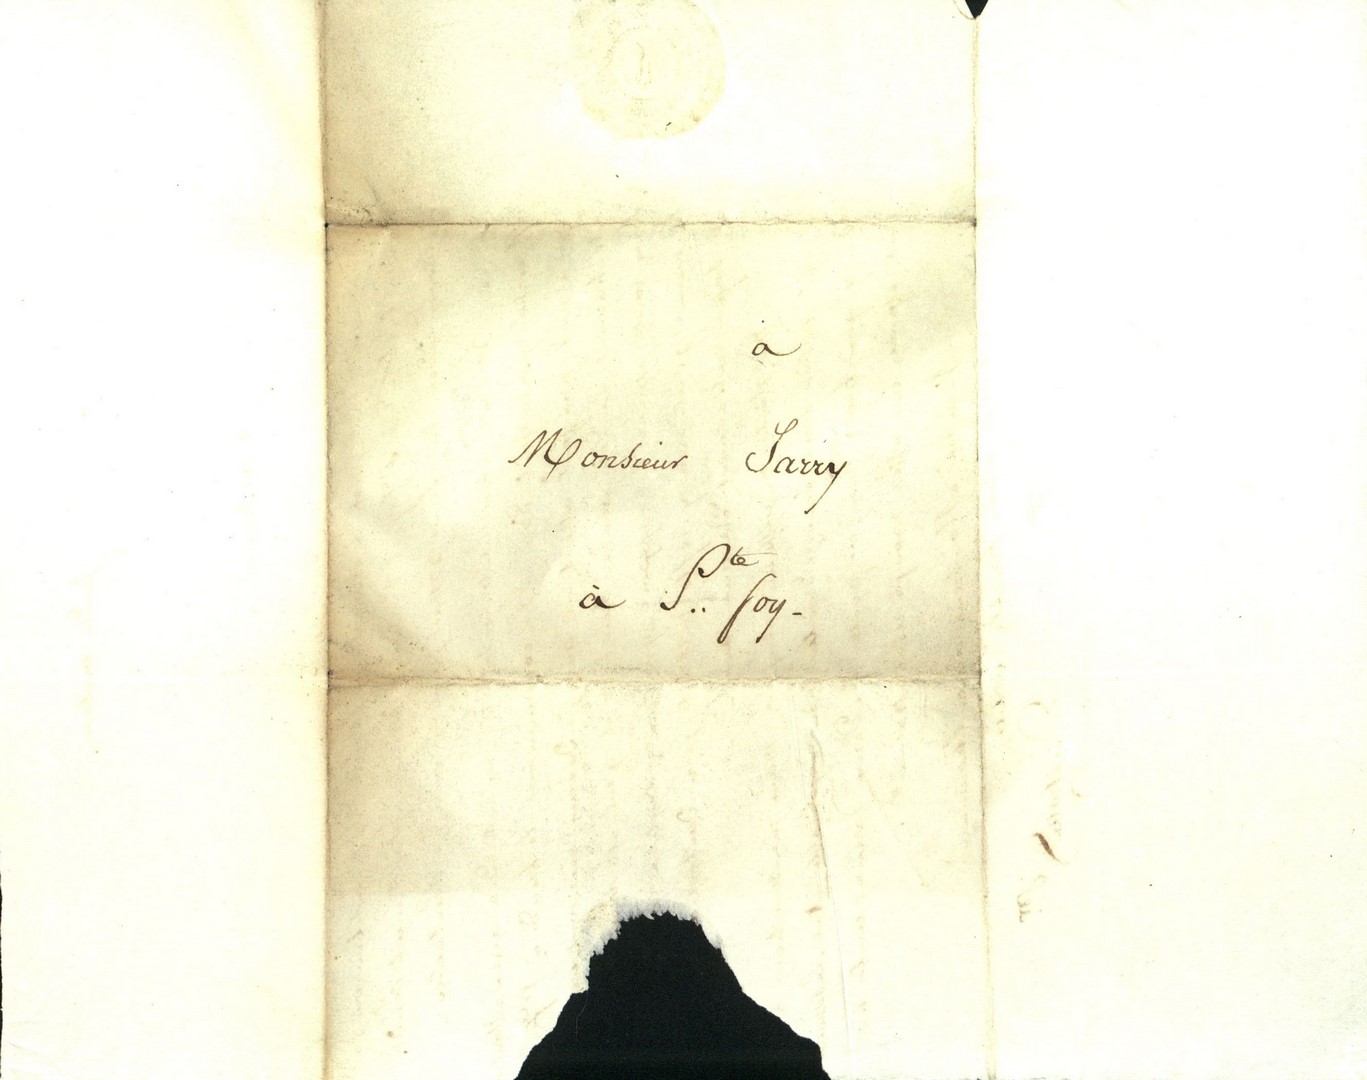 a
Monsieur Sarry
à Ste foy-